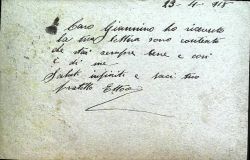 23-4-918
Caro Giannino ho ricevuto
la tua lettera sono contento
che stai sempre bene e così
è di me
Saluti infiniti e baci tuo
fratello Ettore